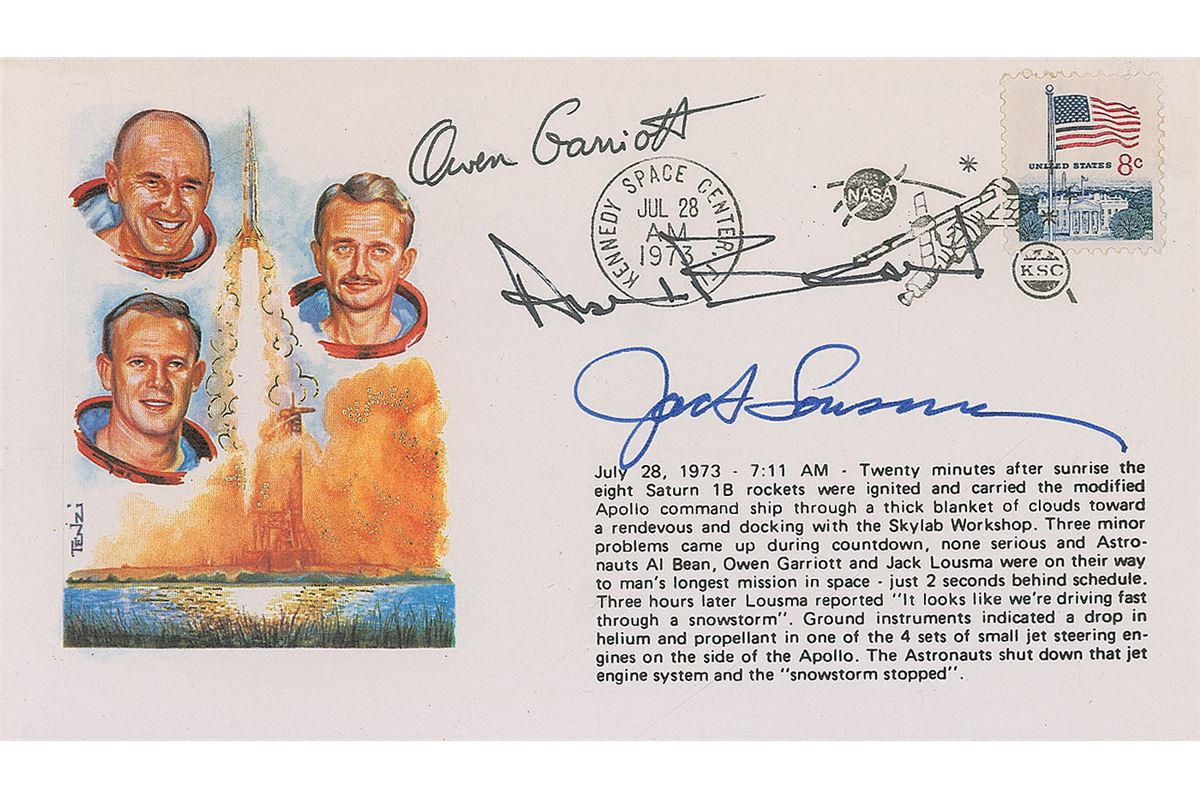 Owen Garriott
KENNEDY SPACE CENTER, FL
JUL 28
AM
1973
NASA
UNITED STATES 8c
KSC
Alan Bean
Jack Lousma
July 28, 1973 - 7:11 AM - Twenty minutes after sunrise the
eight Saturn 1B rockets were ignited and carried the modified
Apollo command ship through a thick blanket of clouds toward
a rendevous and docking with the Skylab Workshop. Three minor
problems came up during countdown, none serious and Astro-
nauts Al Bean, Owen Garriott and Jack Lousma were on their way
to man's longest mission in space - just 2 seconds behind schedule.
Three hours later Lousma reported "It looks like we're driving fast
through a snowstorm". Ground instruments indicated a drop in
helium and propellant in one of the 4 sets of small jet steering en-
gines on the side of the Apollo. The Astronauts shut down that jet
engine system and the "snowstorm stopped".
TENZI